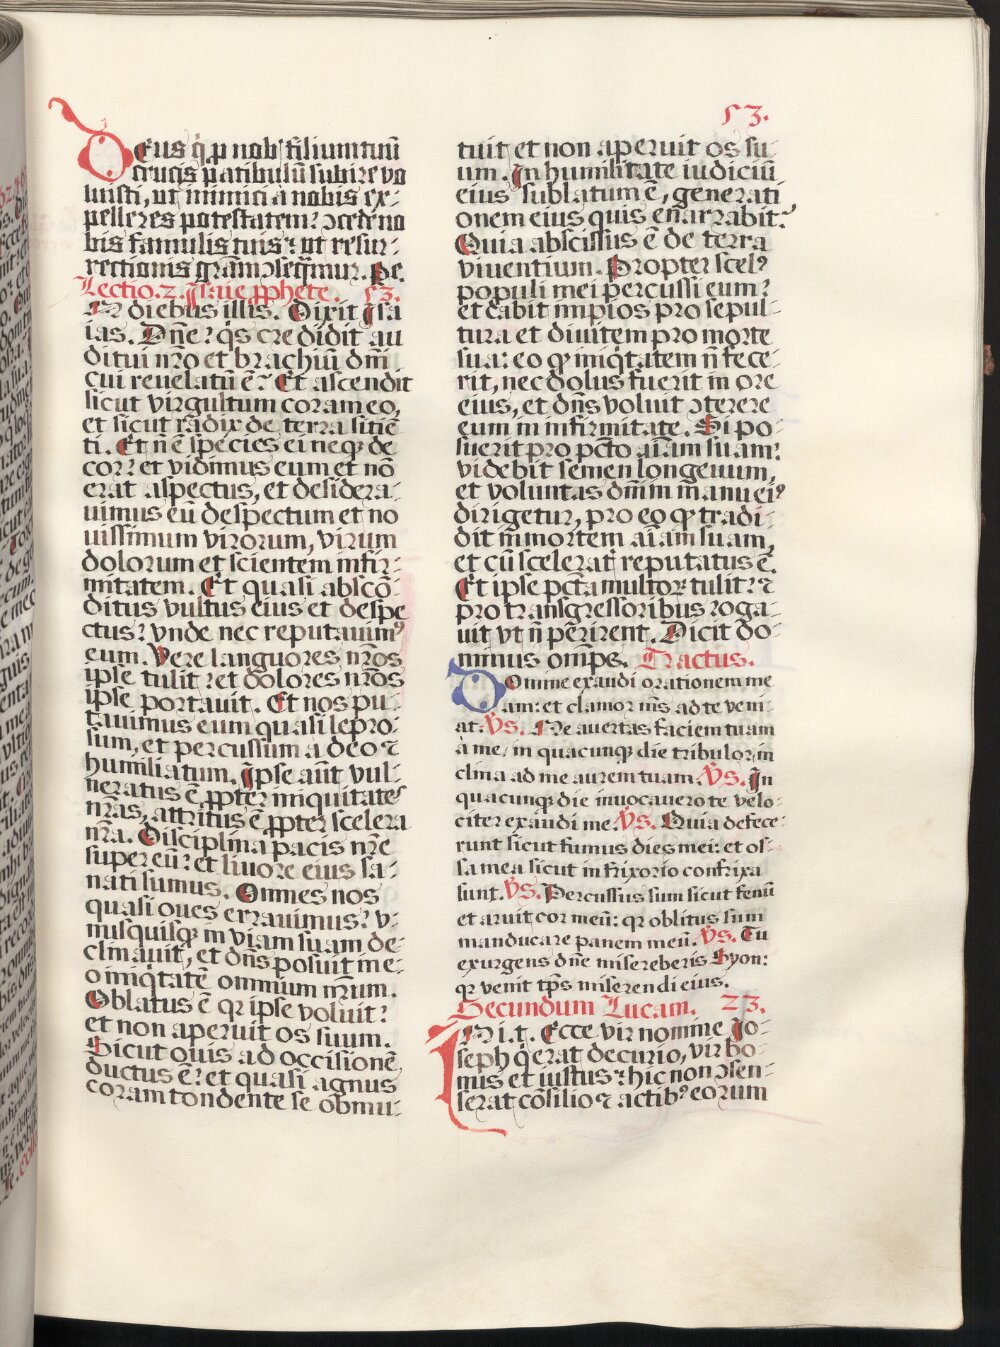 53.
Deus q̇ ꝓ nob̄ filium tuū
crucis patibulū subire vo
luisti, ut inimici a nobis ex-
pelleres potestatem: ↄcede no
bis famulis tuis: ut resur-
rectionis grām ↄseq̄mur. Pe.
Lectio. 2. Isaie ꝓphete. 53.
In diebus illis. Dixit Isa
ias. Dn̄e: q̇s credidit au
ditui nr̄o et brachiū dn̄i
cui reuelatū ē: Et ascendit
sicut virgultum coram eo,
et sicut radix de terra sitiē
ti. Et n̄ ē species ei neqꝫ de
cor: et vidimus eum et nō
erat aspectus, et desidera-
uimus eū despectum et no
uissimum virorum, virum
dolorum et scientem infir-
mitatem. Et quasi abscō-
ditus vultus eius et despe
ctus: vnde nec reputauimꝰ
eum. Vere languores nr̄os
ipse tulit: et dolores nr̄os
ipse portauit. Et nos pu-
tauimus eum quasi lepro-
sum, et percussum a deo ⁊
humiliatum. Ipse aūt vul-
neratus ē ꝓpter iniquitates
nr̄as, attritus ē ꝓpter scelera
nr̄a. Disciplina pacis nr̄e
super eū: et liuore eius sa-
nati sumus. Omnes nos
quasi oues errauimus: v-
nusquisqꝫ in viam suam de-
clinauit, et dn̄s posuit in e-
o iniq̇tatē omnium nr̄um.
Oblatus ē qꝛ ipse voluit:
et non aperuit os suum.
Sicut ouis ad occisionē
ductus ē: et quasi agnus
coram tondente se obmu-
tuit et non aperuit os su-
um. In humilitate iudiciū
eius sublatum ē, generati
onem eius quis enarrabit:
Quia abscissus ē de terra
viuentium. Propter scelꝰ
populi mei percussi eum:
et dabit impios pro sepul-
tura et diuitem pro morte
sua: eo qꝫ iniq̇tatem n̄ fece-
rit, nec dolus fuerit in ore
eius, et dn̄s voluit ↄterere
eum in infirmitate. Si po-
suerit pro pctō aīam suam:
videbit semen longeuum,
et voluntas dn̄i in manu eiꝰ
dirigetur, pro eo qꝫ tradi-
dit in mortem aīam suam,
et cū sceleratꝭ reputatus ē.
Et ipse pctā multoꝝ tulit: ⁊
pro transgressoribus roga-
uit vt n̄ perirent. Dicit do-
minus omps. Tractus.
Domine exaudi orationem me
am: et clamor ms̄ ad te veni-
at. Vs. Ne auertas faciem tuam
a me, in quacunqꝫ die tribulor, in
clina ad me aurem tuam. Vs. In
quacunqꝫ die inuocauero te velo-
citer exaudi me. Vs. Quia defece-
runt sicut fumus dies mei: et os-
sa mea sicut in frixorio confrixa
sunt. Vs. Percussus sum sicut fenū
et aruit cor meū: qꝛ oblitus sum
manducare panem meū. Vs. Tu
exurgens dn̄e misereberis Syon:
qꝛ venit tp̄s miserendi eius.
Secundum Lucam. 23.
In i. t. Ecce vir nomine Io-
seph q̇ erat decurio, vir bo-
nus et iustus: hic non ↄsen-
serat cōsilio ⁊ actibꝰ eorum